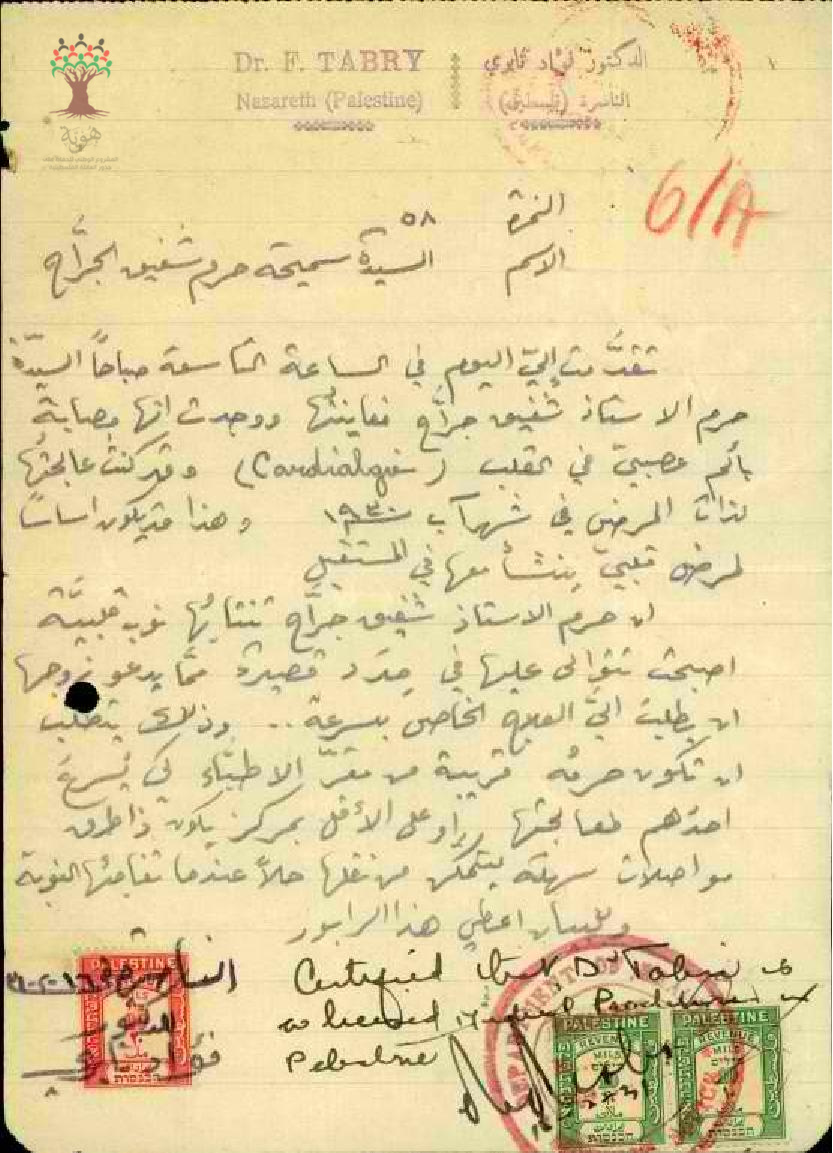 Dr. F. TABRY
Nasareth (Palestine)
الدكتور فؤاد تابري
الناصرة (فلسطين)
هوية
6/A
النمرة ٥٨
الاسم السيدة سميحة حرم شفيق الجرَّاح
تقدَّمت إليّ اليوم في الساعة التاسعة صباحاً السيّدة
حرم الاستاذ شفيق جرَّاح فعاينتُها ووجدت انها مصابة
بألم عصبيّ في القلب (Cardialgie) وقد كنت عالجتُها
لذات المرض في شهر آب ١٩٣٠ وهذا قد يكون اساساً
لمرض قلبيّ ينشأ معها في المستقبل
ان حرم الاستاذ شفيق جرَّاح تنتابُها نوب قلبيَّة
اصبحت تتوالى عليها في مدَد قصيرة ممَّا يدعو زوجها
ان يطلبَ اليَّ العلاج الخاص بسرعة .. وذلك يتطلب
ان تكون حرمُه قريبة من مقرّ الاطبَّاء كي يُسرعَ
احدُهم لمعالجتها او على الأقل بمركز يكون ذا طرق
مواصلات سهلة ليتمكن من نقلها حالاً عندما تفاجئها النوبة
وللبيان اعطي هذا الرابور
الناصرة
الدكتور
فؤاد تابري
Certified that Dr Tabri is
a licensed Medical Practitioner in
Palestine
DEPARTMENT OF
PALESTINE
PALESTINE
REVENUE
MILS
PALESTINE
REVENUE
MILS